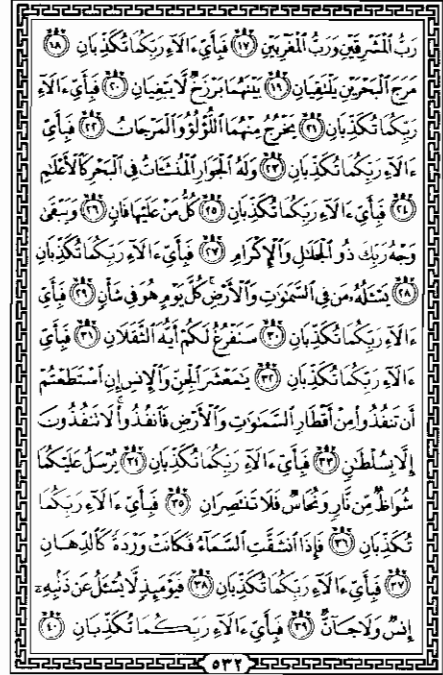 رَبُّ ٱلْمَشْرِقَيْنِ وَرَبُّ ٱلْمَغْرِبَيْنِ ١٧ فَبِأَىِّ ءَالَآءِ رَبِّكُمَا تُكَذِّبَانِ ١٨
مَرَجَ ٱلْبَحْرَيْنِ يَلْتَقِيَانِ ١٩ بَيْنَهُمَا بَرْزَخٌ لَّا يَبْغِيَانِ ٢٠ فَبِأَىِّ ءَالَآءِ
رَبِّكُمَا تُكَذِّبَانِ ٢١ يَخْرُجُ مِنْهُمَا ٱللُّؤْلُؤُ وَٱلْمَرْجَانُ ٢٢ فَبِأَىِّ
ءَالَآءِ رَبِّكُمَا تُكَذِّبَانِ ٢٣ وَلَهُ ٱلْجَوَارِ ٱلْمُنشَـَٔاتُ فِى ٱلْبَحْرِ كَٱلْأَعْلَٰمِ
٢٤ فَبِأَىِّ ءَالَآءِ رَبِّكُمَا تُكَذِّبَانِ ٢٥ كُلُّ مَنْ عَلَيْهَا فَانٍ ٢٦ وَيَبْقَىٰ
وَجْهُ رَبِّكَ ذُو ٱلْجَلَٰلِ وَٱلْإِكْرَامِ ٢٧ فَبِأَىِّ ءَالَآءِ رَبِّكُمَا تُكَذِّبَانِ
٢٨ يَسْـَٔلُهُۥ مَن فِى ٱلسَّمَٰوَٰتِ وَٱلْأَرْضِ ۚ كُلَّ يَوْمٍ هُوَ فِى شَأْنٍ ٢٩ فَبِأَىِّ
ءَالَآءِ رَبِّكُمَا تُكَذِّبَانِ ٣٠ سَنَفْرُغُ لَكُمْ أَيُّهَ ٱلثَّقَلَانِ ٣١ فَبِأَىِّ
ءَالَآءِ رَبِّكُمَا تُكَذِّبَانِ ٣٢ يَٰمَعْشَرَ ٱلْجِنِّ وَٱلْإِنسِ إِنِ ٱسْتَطَعْتُمْ
أَن تَنفُذُوا۟ مِنْ أَقْطَارِ ٱلسَّمَٰوَٰتِ وَٱلْأَرْضِ فَٱنفُذُوا۟ ۚ لَا تَنفُذُونَ
إِلَّا بِسُلْطَٰنٍ ٣٣ فَبِأَىِّ ءَالَآءِ رَبِّكُمَا تُكَذِّبَانِ ٣٤ يُرْسَلُ عَلَيْكُمَا
شُوَاظٌ مِّن نَّارٍ وَنُحَاسٌ فَلَا تَنتَصِرَانِ ٣٥ فَبِأَىِّ ءَالَآءِ رَبِّكُمَا
تُكَذِّبَانِ ٣٦ فَإِذَا ٱنشَقَّتِ ٱلسَّمَآءُ فَكَانَتْ وَرْدَةً كَٱلدِّهَانِ
٣٧ فَبِأَىِّ ءَالَآءِ رَبِّكُمَا تُكَذِّبَانِ ٣٨ فَيَوْمَئِذٍ لَّا يُسْـَٔلُ عَن ذَنۢبِهِۦٓ
إِنسٌ وَلَا جَآنٌّ ٣٩ فَبِأَىِّ ءَالَآءِ رَبِّكُمَا تُكَذِّبَانِ ٤٠
٥٣٢